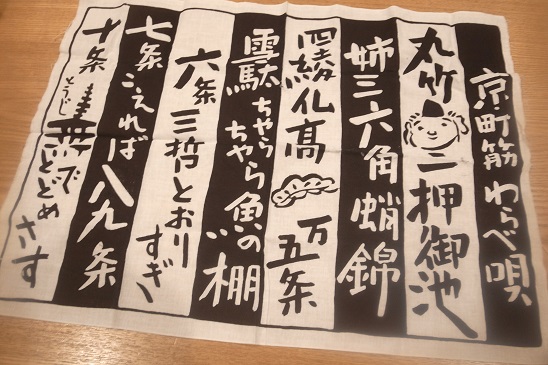 京町筋わらべ唄
丸竹 二押御池
姉三六角蛸錦
四綾仏高 万五条
雪駄ちゃらちゃら魚の棚
六条三哲とおりすぎ
七条こえれば八九条
十条とうじでとどめさす